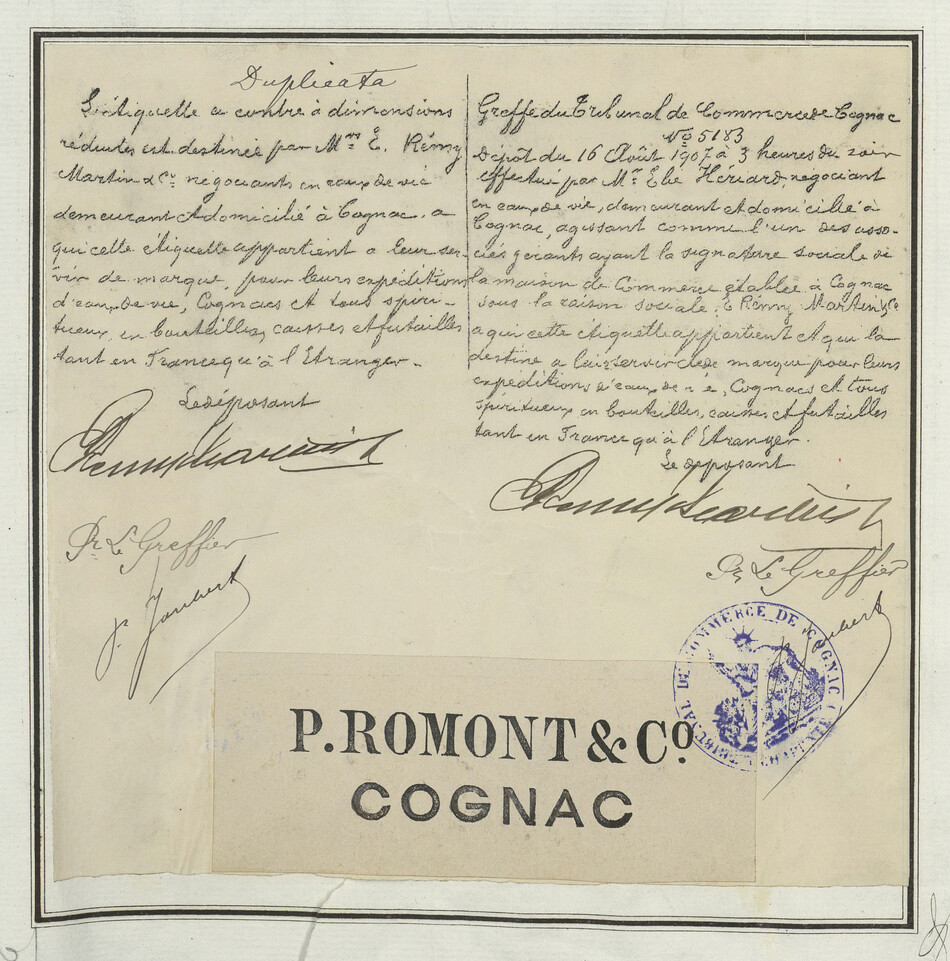 Duplicata
L'étiquette ci contre à dimensions
réduites est destinée par Mrs E. Rémy
Martin & Co négociants en eaux de vie
demeurant et domicilié à Cognac, a
qui cette étiquette appartient a leur ser-
vir de marque, pour leurs expéditions
d'eaux de vie, Cognacs et tous spiri-
tueux, en bouteilles, caisses et futailles
tant en France qu'à l'Etranger.
Le déposant
Remy Martin & Co
Pr Le Greffier
P. Jaubert
Greffe du Tribunal de Commerce de Cognac
No 5183
Dépôt du 16 Août 1907 à 3 heures du soir
effectué par Mr Elie Hériard, négociant
en eaux de vie, demeurant et domicilié à
Cognac, agissant comme l'un des asso-
ciés gérants ayant la signature sociale de
la maison de Commerce établie à Cognac
sous la raison sociale, E Rémy Martin & Co
a qui cette étiquette appartient et qui la
destine a lui servir de marque pour leurs
expéditions d'eaux de vie, Cognacs et tous
spiritueux en bouteilles, caisses et futailles
tant en France qu'à l'Etranger.
Le déposant
Remy Martin & Co
Pr Le Greffier
P. Jaubert
TRIBUNAL DE COMMERCE DE COGNAC
P. ROMONT & Co.
COGNAC